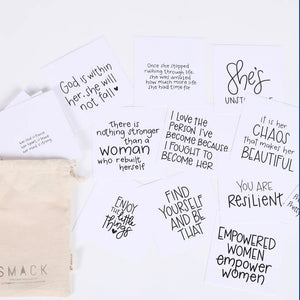 God is within
her, she will
not fall
Once she stopped
rushing through life
she was amazed
how much more life
she had time for
She's
UNSTO
There is
nothing stronger
than a
woman
who rebuilt
herself
I LOVE THE
PERSON I'VE
BECAUSE
BECOME
I FOUGHT TO
BECOME HER
it is Her
CHAOS
that makes her
BEAUTIFUL
ENJOY
THE little
things
FIND
YOURSELF
AND BE
THAT
YOU ARE
RESILIENT
EMPOWERED
WOMEN
empower
women
SMACK